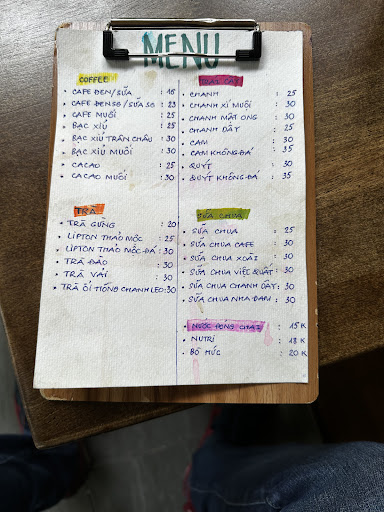 MENU
COFFEE
• CAFE ĐEN/SỮA : 15
• CAFE ĐEN SG/SỮA SG : 23
• CAFE MUỐI : 25
• BẠC XỈU : 25
• BẠC XỈU TRÂN CHÂU : 30
• BẠC XỈU MUỐI : 30
• CACAO : 25
• CACAO MUỐI : 30
TRÀ
• TRÀ GỪNG : 20
• LIPTON THẢO MỘC : 25
• LIPTON THẢO MỘC ĐÁ : 30
• TRÀ ĐÀO : 30
• TRÀ VẢI : 30
• TRÀ ỔI HỒNG CHANH LEO : 30
• CHANH : 25
• CHANH XÍ MUỘI : 30
• CHANH MẬT ONG : 30
• CHANH DÂY : 25
• CAM : 30
• CAM KHÔNG ĐÁ : 35
• QUÝT : 30
• QUÝT KHÔNG ĐÁ : 35
SỮA CHUA
• SỮA CHUA : 25
• SỮA CHUA CAFE : 30
• SỮA CHUA XOÀI : 30
• SỮA CHUA VIỆT QUẤT : 30
• SỮA CHUA CHANH DÂY : 30
• SỮA CHUA NHA ĐAM : 30
• NƯỚC ĐÓNG CHAI : 15K
• NUTRI : 18K
• BÒ HÚC : 20K